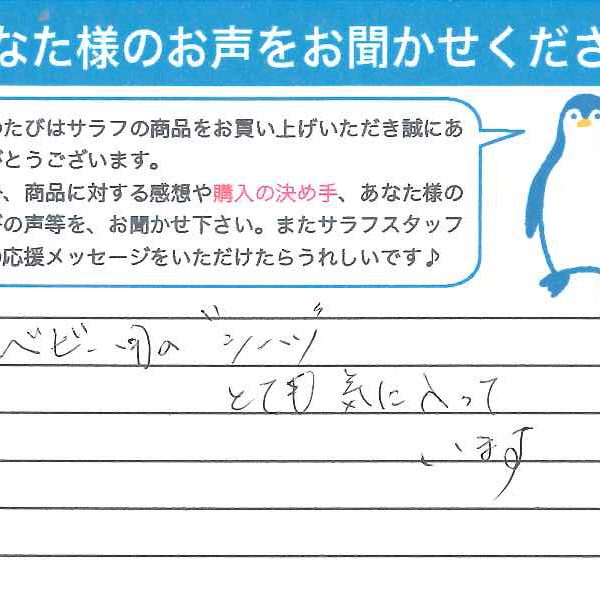 なた様のお声をお聞かせくださ
のたびはサラフの商品をお買い上げいただき誠にあ
がとうございます。
、商品に対する感想や購入の決め手、あなた様の
の声等を、お聞かせ下さい。またサラフスタッフ
の応援メッセージをいただけたらうれしいです♪
ベビー用の
とても気に入って
います